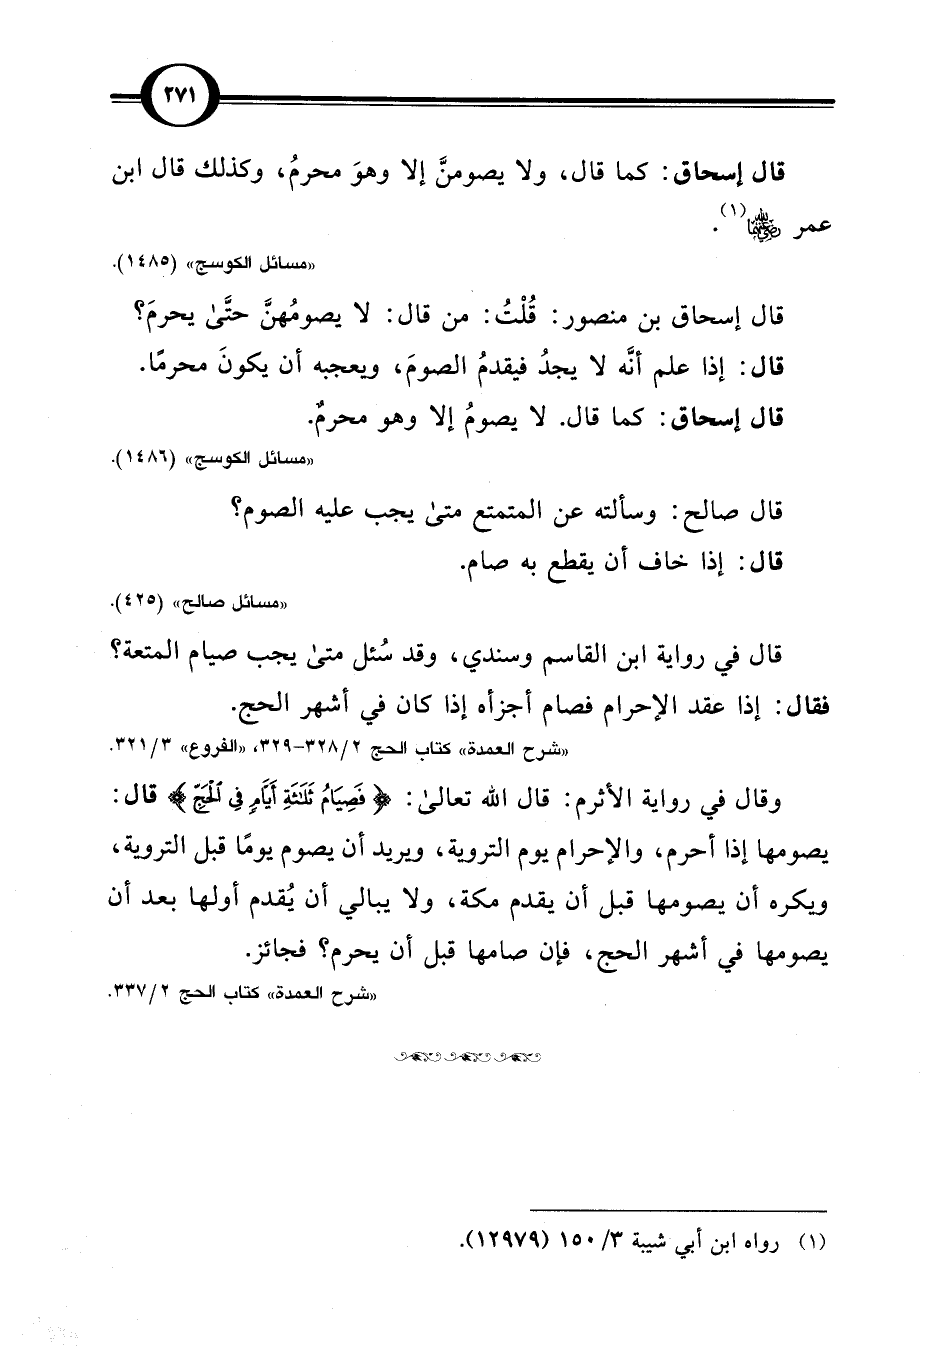 ٢٧١
قال إسحاق: كما قال، ولا يصومنَّ إلا وهوَ محرمُ، وكذلك قال ابن
عمر رضي الله عنهما(١).
«مسائل الكوسج» (١٤٨٥).
قال إسحاق بن منصور: قُلْتُ: من قال: لا يصومُهنَّ حتَّىٰ يحرمَ؟
قال: إذا علم أنَّه لا يجدُ فيقدمُ الصومَ، ويعجبه أن يكونَ محرمًا.
قال إسحاق: كما قال. لا يصومُ إلا وهو محرمٌ.
«مسائل الكوسج» (١٤٨٦).
قال صالح: وسألته عن المتمتع متىٰ يجب عليه الصوم؟
قال: إذا خاف أن يقطع به صام.
«مسائل صالح» (٤٢٥).
قال في رواية ابن القاسم وسندي، وقد سُئل متىٰ يجب صيام المتعة؟
فقال: إذا عقد الإحرام فصام أجزأه إذا كان في أشهر الحج.
«شرح العمدة» كتاب الحج ٢/ ٣٢٨-٣٢٩، «الفروع» ٣/ ٣٢١.
وقال في رواية الأثرم: قال الله تعالىٰ: ﴿فَصِيَامُ ثَلَٰثَةِ أَيَّامٍ فِي ٱلْحَجِّ﴾ قال:
يصومها إذا أحرم، والإحرام يوم التروية، ويريد أن يصوم يومًا قبل التروية،
ويكره أن يصومها قبل أن يقدم مكة، ولا يبالي أن يُقدم أولها بعد أن
يصومها في أشهر الحج، فإن صامها قبل أن يحرم؟ فجائز.
«شرح العمدة» كتاب الحج ٢/ ٣٣٧.
(١) رواه ابن أبي شيبة ٣/ ١٥٠ (١٢٩٧٩).